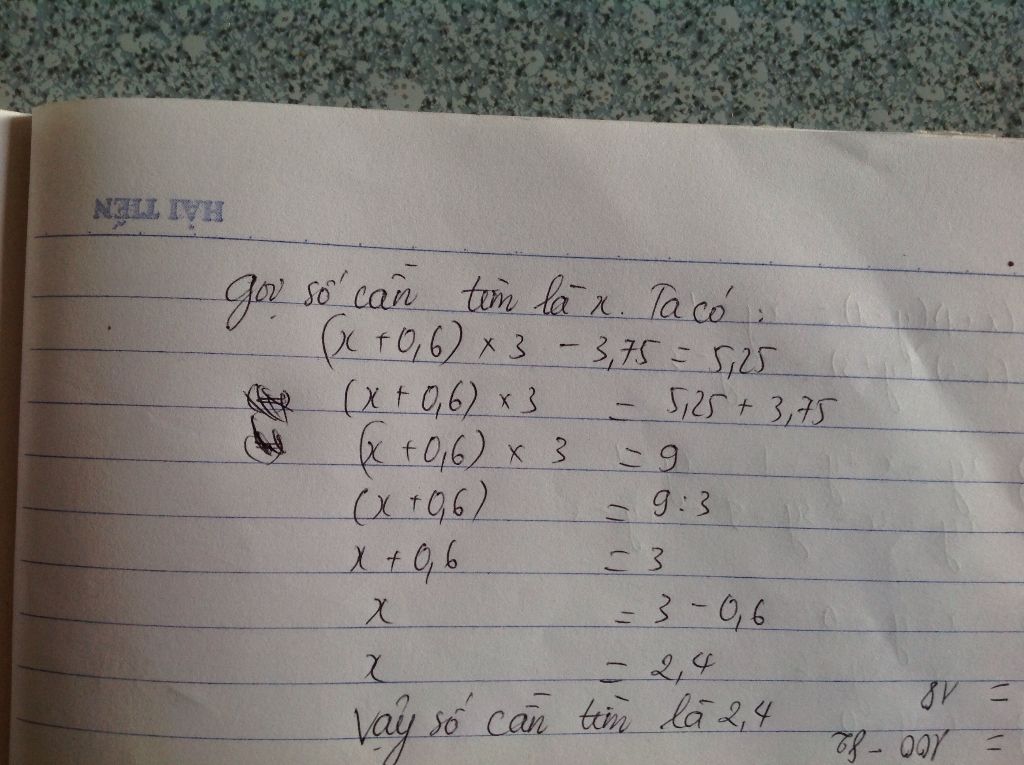 HẢI TIẾN
Gọi số cần tìm là x. Ta có :
(x + 0,6) × 3 - 3,75 = 5,25
(x + 0,6) × 3 = 5,25 + 3,75
(x + 0,6) × 3 = 9
(x + 0,6) = 9 : 3
x + 0,6 = 3
x = 3 - 0,6
x = 2,4
Vậy số cần tìm là 2,4
= 18
= 100 - 82